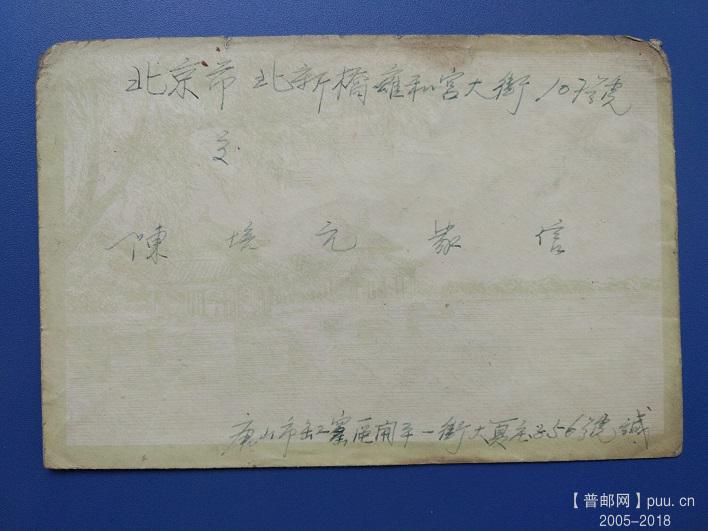 北京市北新橋雍和宮大街107號
交
陳培元 家信
唐山市缸窰區開平一街大真庄子56號緘
【普邮网】puu.cn
2005-2018